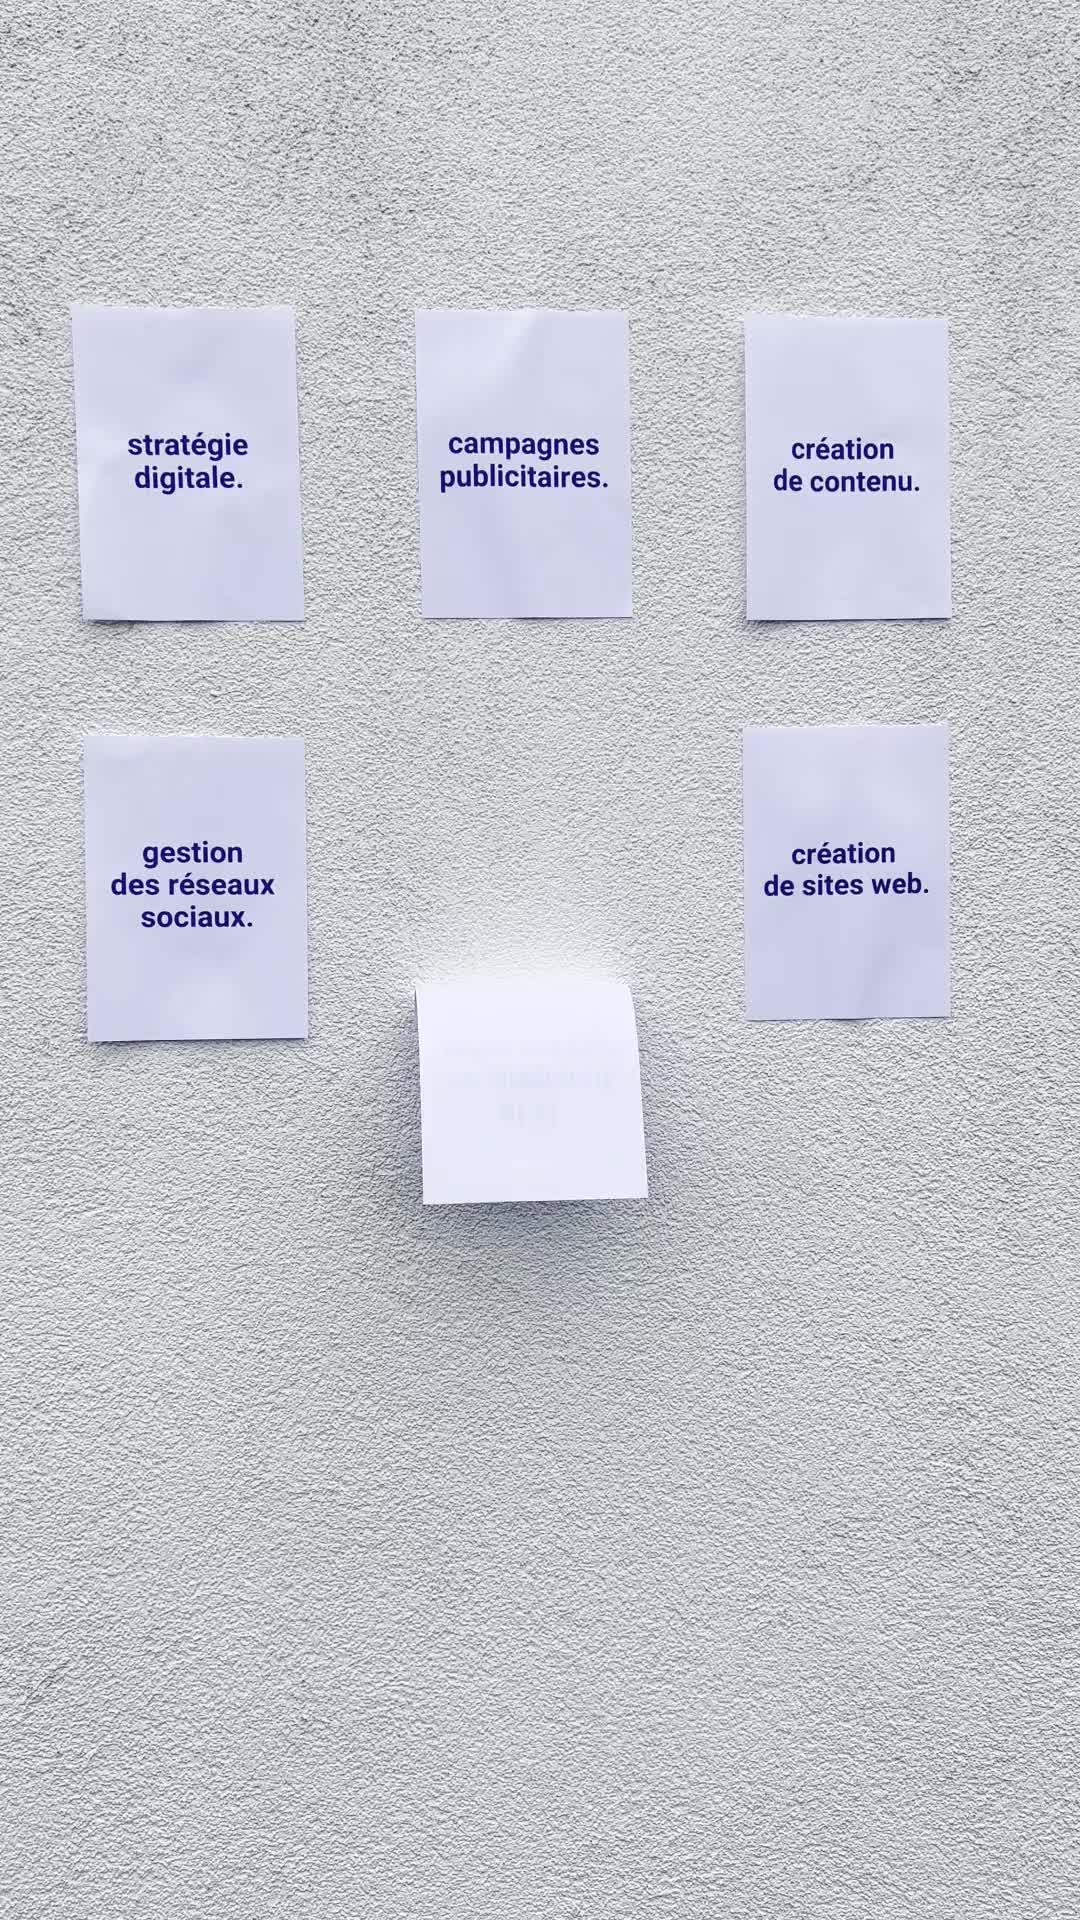 stratégie
digitale.
campagnes
publicitaires.
création
de contenu.
gestion
des réseaux
sociaux.
création
de sites web.